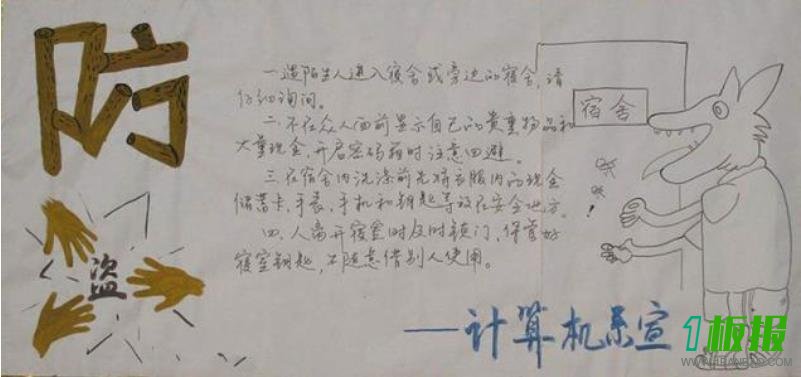 防
盗
一.遇陌生人进入宿舍或旁边的宿舍,请
仔细询问。
二.不在众人面前显示自己的貴重物品和
大量现金,开启密码箱时注意回避。
三.在宿舍内洗涤前先将衣服内的现金
储蓄卡、手表、手机和钥匙等放在安全地方。
四、人离开寝室时及时锁门,保管好
寝室钥匙,不随意借别人使用。
宿舍
!
——计算机系宣
1板报
WWW.1BANBAO.COM